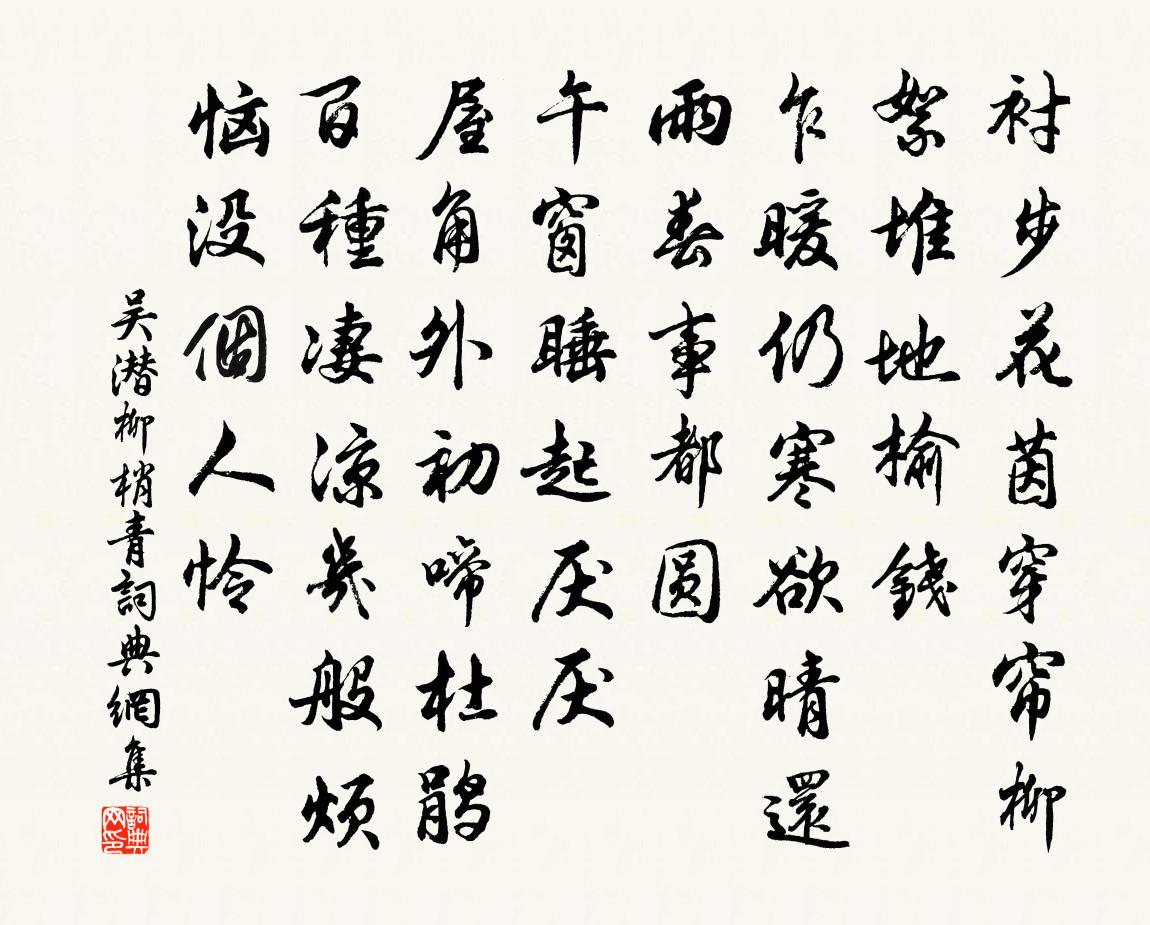 衬步花茵穿帘柳
絮堆地榆錢
乍暖仍寒欲晴還
雨春事都圆
午窗睡起厌厌
屋角外初啼杜鹃
百種凄凉幾般烦
恼没個人怜
吴潜柳梢青詞典網集
詞典网印